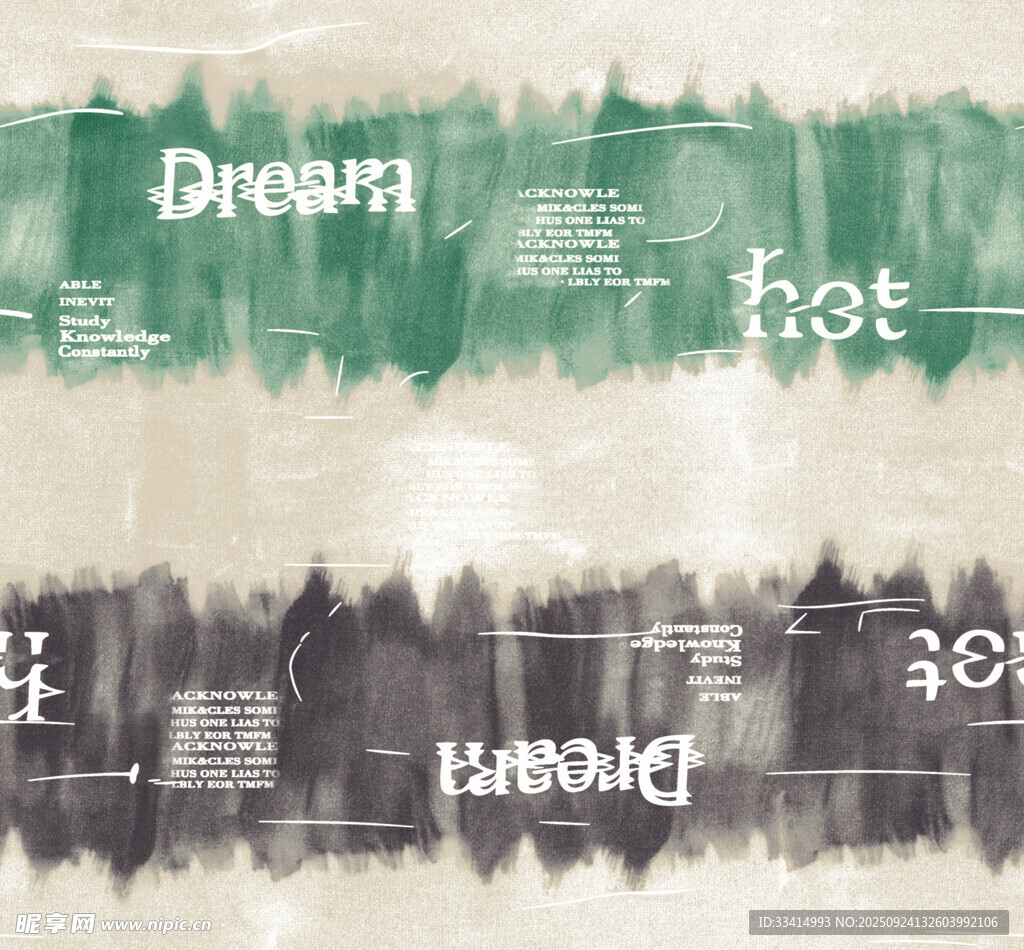 Dream
ACKNOWLE
MIK&CLES SOMI
HUS ONE LIAS TO
BLY EOR TMFM
ACKNOWLE
MIK&CLES SOMI
IUS ONE LIAS TO
LBLY EOR TMFM
hot
ABLE
INEVIT
Study
Knowledge
Constantly
ACKNOWLE
MIK&CLES SOMI
LIAS TO
ACKNOWLE
LBLY EOR TMFM
Constantly
Knowledge
Study
INEVIT
ABLE
hot
ACKNOWLE
MIK&CLES SOMI
HUS ONE LIAS TO
LBLY EOR TMFM
ACKNOWLE
MIK&CLES SOMI
HUS ONE LIAS TO
LBLY EOR TMFM
Dream
昵享网 www.nipic.cn
ID:33414993 NO:20250924132603992106